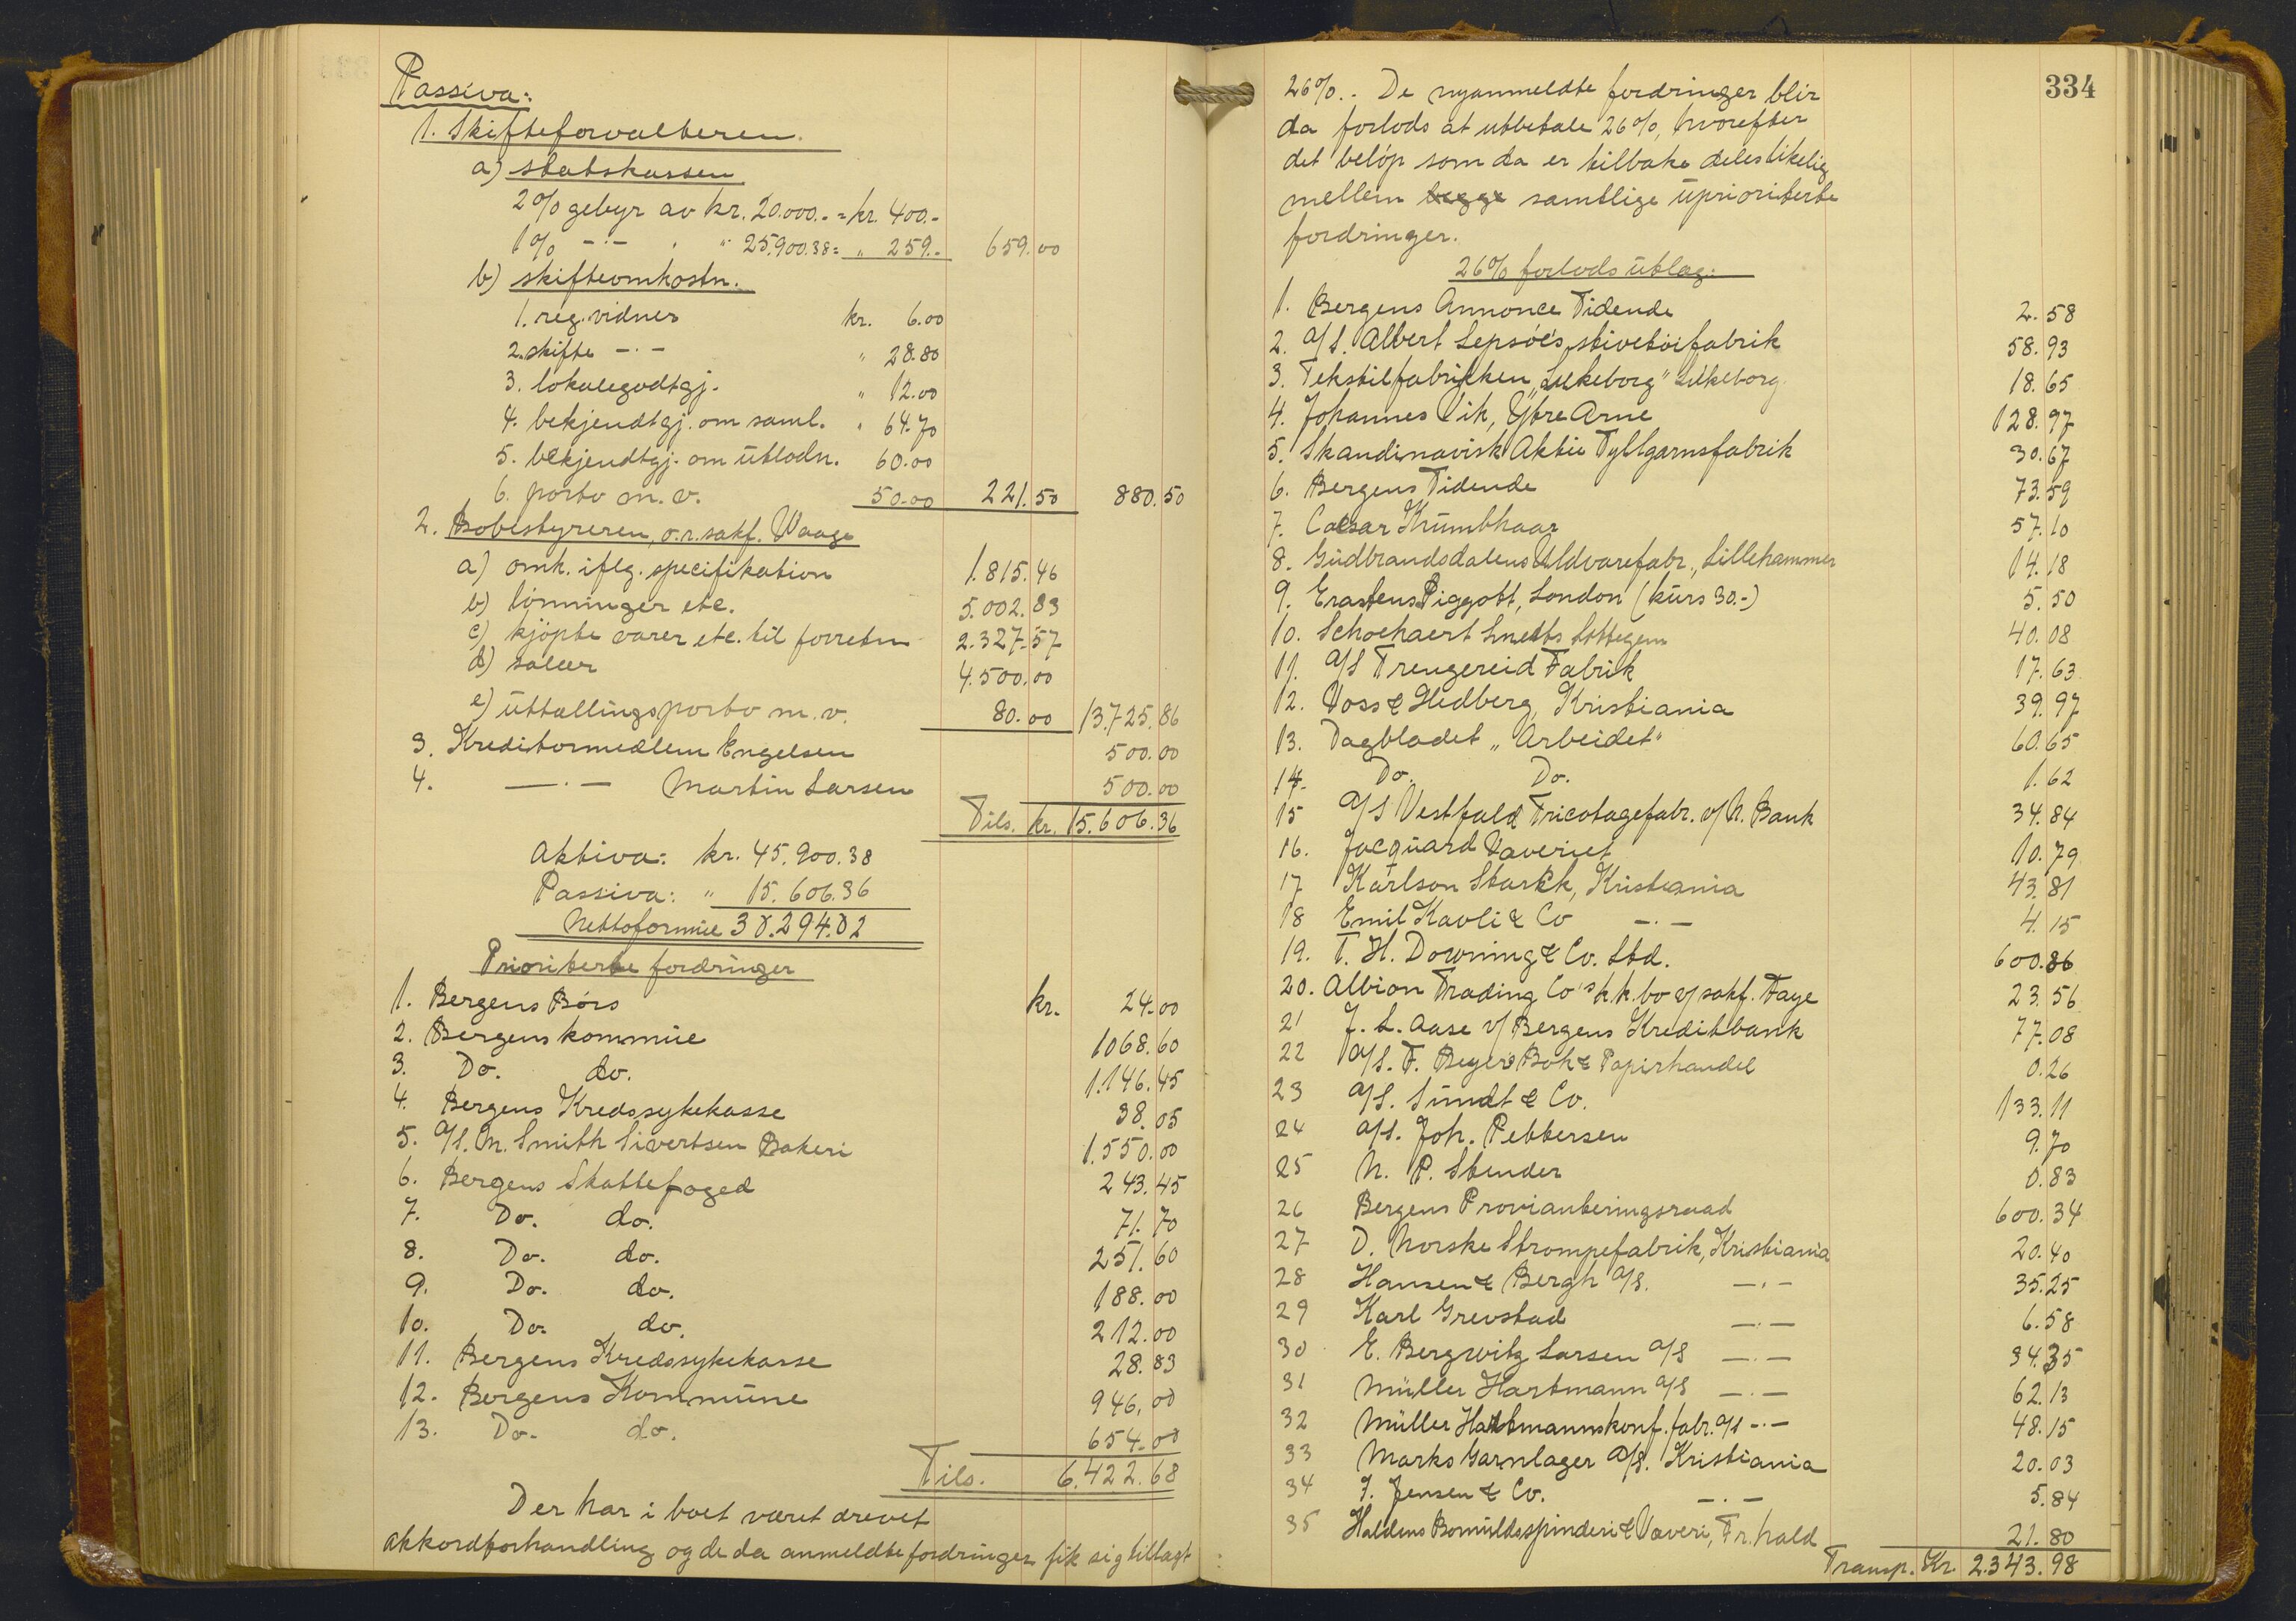 Passiva:
1. Skifteforvalteren.
a) statskassen
2% gebyr av kr. 20.000.- = kr. 400.-
1% -.- " " 25.900.38 = " 259.- 659.00
b) skifteomkostn.
1. reg. vidner kr. 6.00
2. skifte -.- " 28.80
3. lokalegodtgj. " 12.00
4. bekjendtgj. om saml. " 64.70
5. bekjendtgj. om utlodn. 60.00
6. porto m. v. 50.00 221.50 880.50
2. Bobestyreren, o.r.sakf. Waage
a) omk. iflg. specifikation 1.815.46
b) lønninger etc. 5.002.83
c) kjöpte varer etc. til forretn 2.327.57
d) salær 4.500.00
e) uttællingsporto m. v. 80.00 13.725.86
3. Kreditormedlem Engelsen 500.00
4. -.- Martin Larsen 500.00
Tils. kr. 15.606.36
Aktiva: kr. 45.900.38
Passiva: " 15.606.36
Nettoformue 30.294.02
Prioriterte fordringer
1. Bergens Børs kr. 24.00
2. Bergens kommue 1068.60
3. Do. do. 1.146.45
4. Bergens Kredssykekasse 38.05
5. A/S. M. Smith Sivertsen Bakeri 1.550.00
6. Bergens Skattefoged 243.45
7. Do. do. 71.70
8. Do. do. 251.60
9. Do. do. 188.00
10. Do. do. 212.00
11. Bergens Kredssykekasse 28.83
12. Bergens Kommune 946.00
13. Do. do. 654.00
Tils. 6.422.68
Der har i boet været drevet
akkordforhandling og de da anmeldte fordringer fik sig tillagt
334
26%.. De nyanmeldte fordringer blir
da forlods at utbetale 26%, hvorefter
det beløp som da er tilbake deles likelig
mellem begge samtlige uprioriterte
fordringer.
26% forlods utlæg:
1. Bergens Annonce Tidende 2.58
2. A/S. Albert Lepsöes stivetöifabrik 58.93
3. Tekstilfabrikken "Silkeborg" Silkeborg 18.65
4. Johannes Vik, Ytre Arne 128.97
5. Skandinavisk Aktie Tyllgarnsfabrik 30.67
6. Bergens Tidende 73.59
7. Caesar Krumbhaar 57.10
8. Gudbrandsdalens Uldvarefabr., Lillehammer 14.18
9. Erastens Piggott, London (kurs 30.-) 5.50
10. Schochaert Sottegem 40.08
11. A/S Trengereid Fabrik 17.63
12. Voss & Hedberg, Kristiania 39.97
13. Dagbladet "Arbeidet" 60.65
14. Do. Do. 1.62
15 A/S Vestfold Tricotagefabr. v/ N. Bank 34.84
16. Jacquard Væveriet 10.79
17 Karlson Starck, Kristiania 43.81
18 Emil Kavli & Co -.- 4.15
19. T. H. Downing & Co. Ltd. 600.86
20. Albion Trading Co's k.k. bo v/ sakf. Faye 23.56
21 J. L. Aase v/ Bergens Kreditbank 77.08
22 A/S. F. Beyers Bok & Papirhandel 0.26
23 A/S. Sundt & Co. 133.11
24 A/S. Joh. Pettersen 9.70
25 N. P. Stender 0.83
26 Bergens Provianteringsraad 600.34
27 D. Norske Strømpefabrik, Kristiania 20.40
28 Hansen & Bergh A/S. -.- 35.25
29 Karl Grevstad -.- 6.58
30 E. Bergwitz Larsen A/S -.- 34.35
31 Müller Hartmann A/S -.- 62.13
32 Müller Hartmannskonf. fabr. A/S -.- 48.15
33 Marks Garnlager A/S. Kristiania 20.03
34 J. Jensen & Co. -.- 5.84
35 Haldens Bomuldsspinderi & Væveri, Fr.hald 21.80
Transp. Kr. 2.343.98